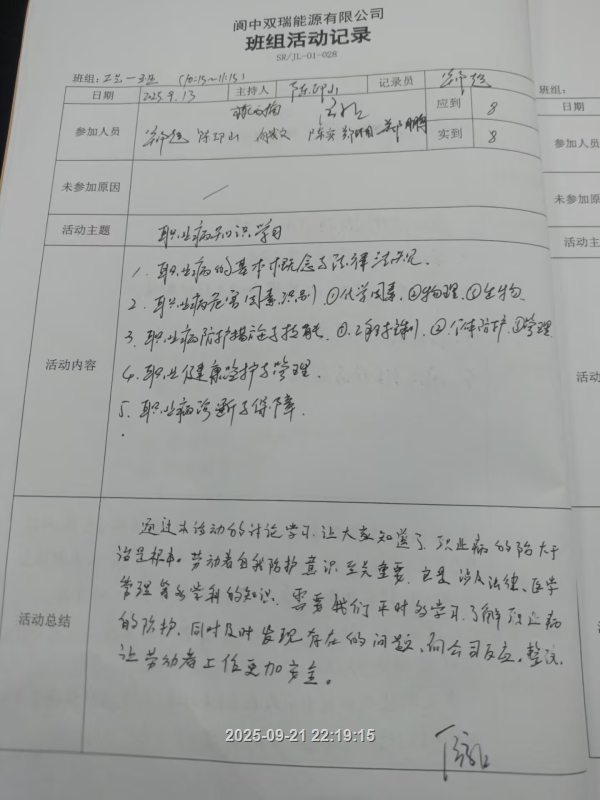 阆中双瑞能源有限公司
班组活动记录
SR/JL-01-028
班组：工艺一班 （10:15~11:15）
日期 2025.9.13 主持人 陈邱山 记录员
参加人员 陈邱山 应到 8
实到 8
未参加原因 /
活动主题 职业病知识学习
活动内容
1、职业病的基本概念与法律法规、
2、职业病危害因素识别、①化学因素、②物理、③生物、
3、职业病防护措施与技能、①、工程控制、②、个体防护、③管理
4、职业健康监护与管理、
5、职业病诊断与保障、
活动总结
通过本活动的讨论学习，让大家知道了职业病的防大于
治是根本。劳动者自我防护意识至关重要，它是涉及法律、医学
管理等多学科的知识，需要我们平时多学习、了解职业病
的防护，同时及时发现存在的问题、向公司反应。整改，
让劳动者工作更加安全。
班组：
日期
参加人员
未参加原
活动主
活动
2025-09-21 22:19:15